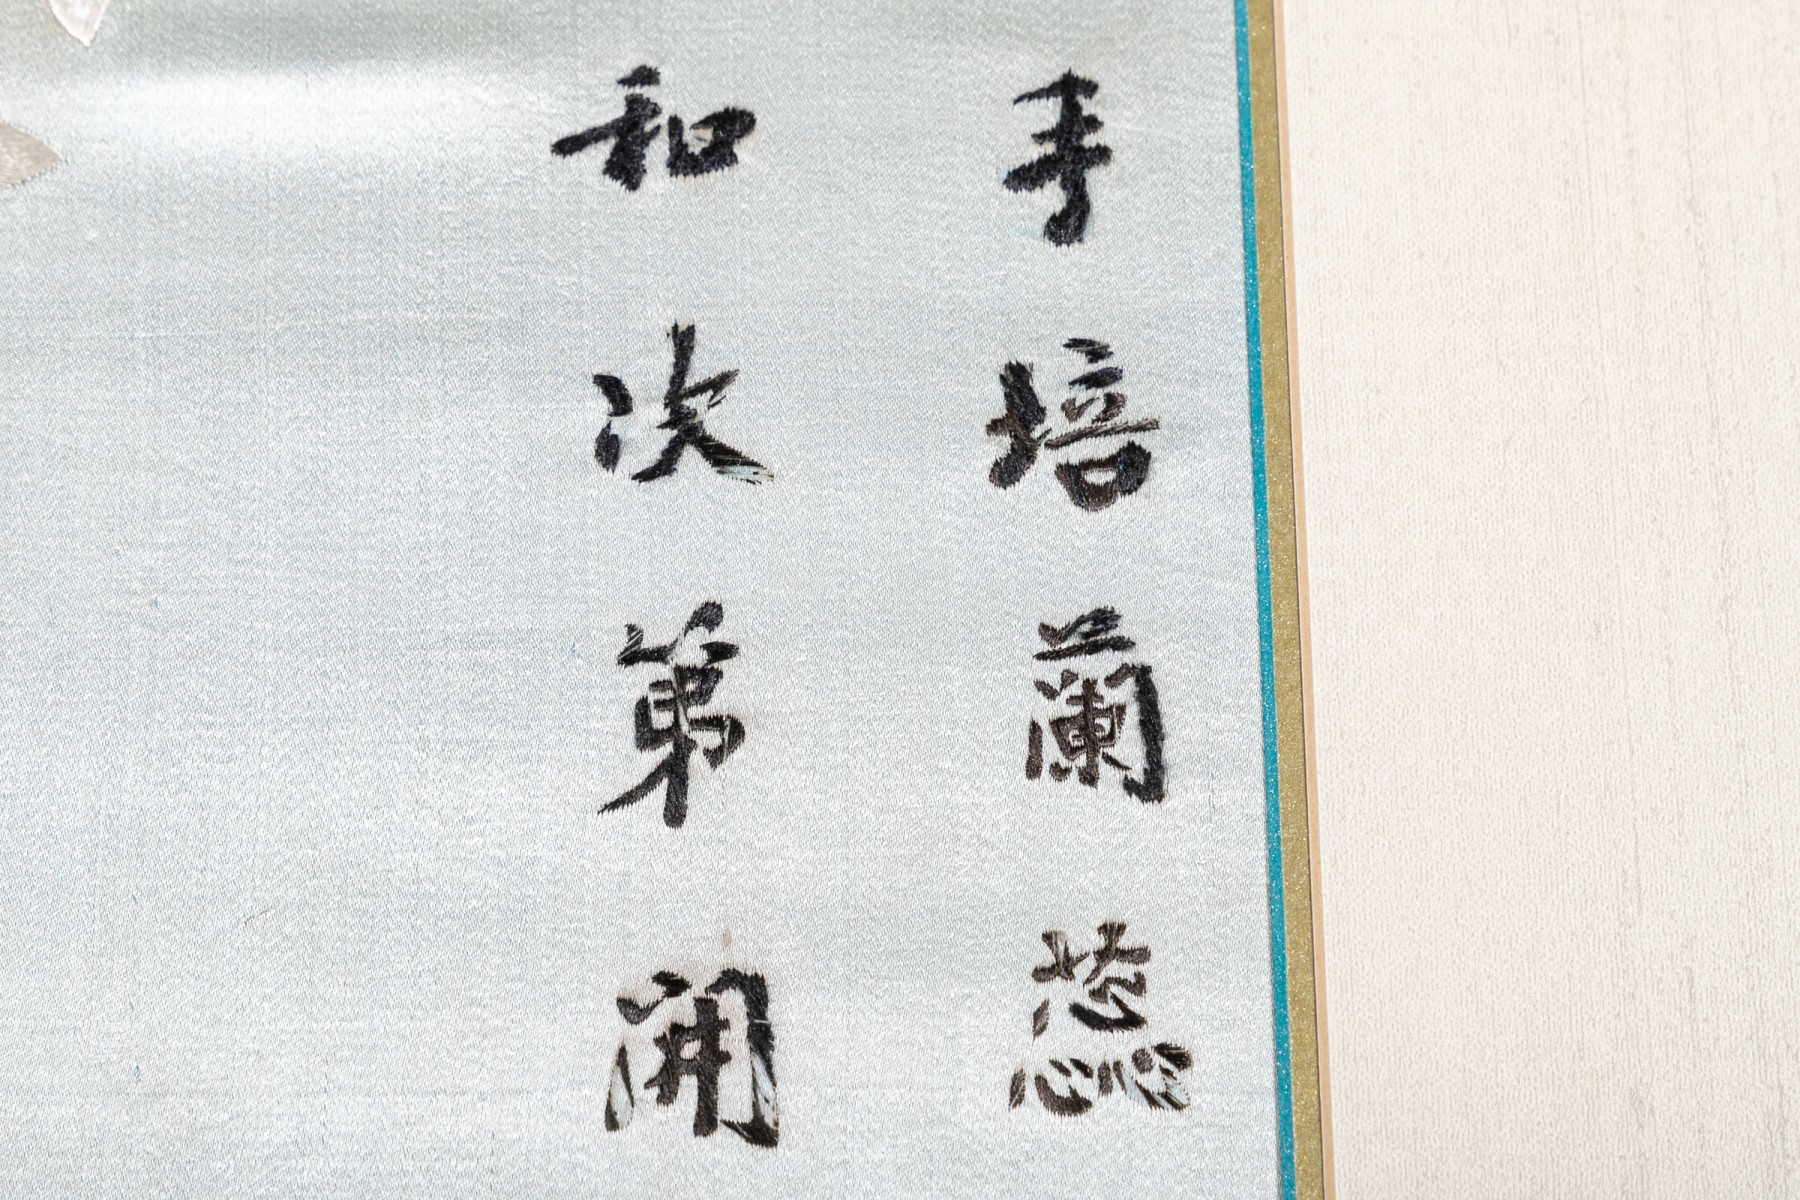 手培蘭蕊
和次第開